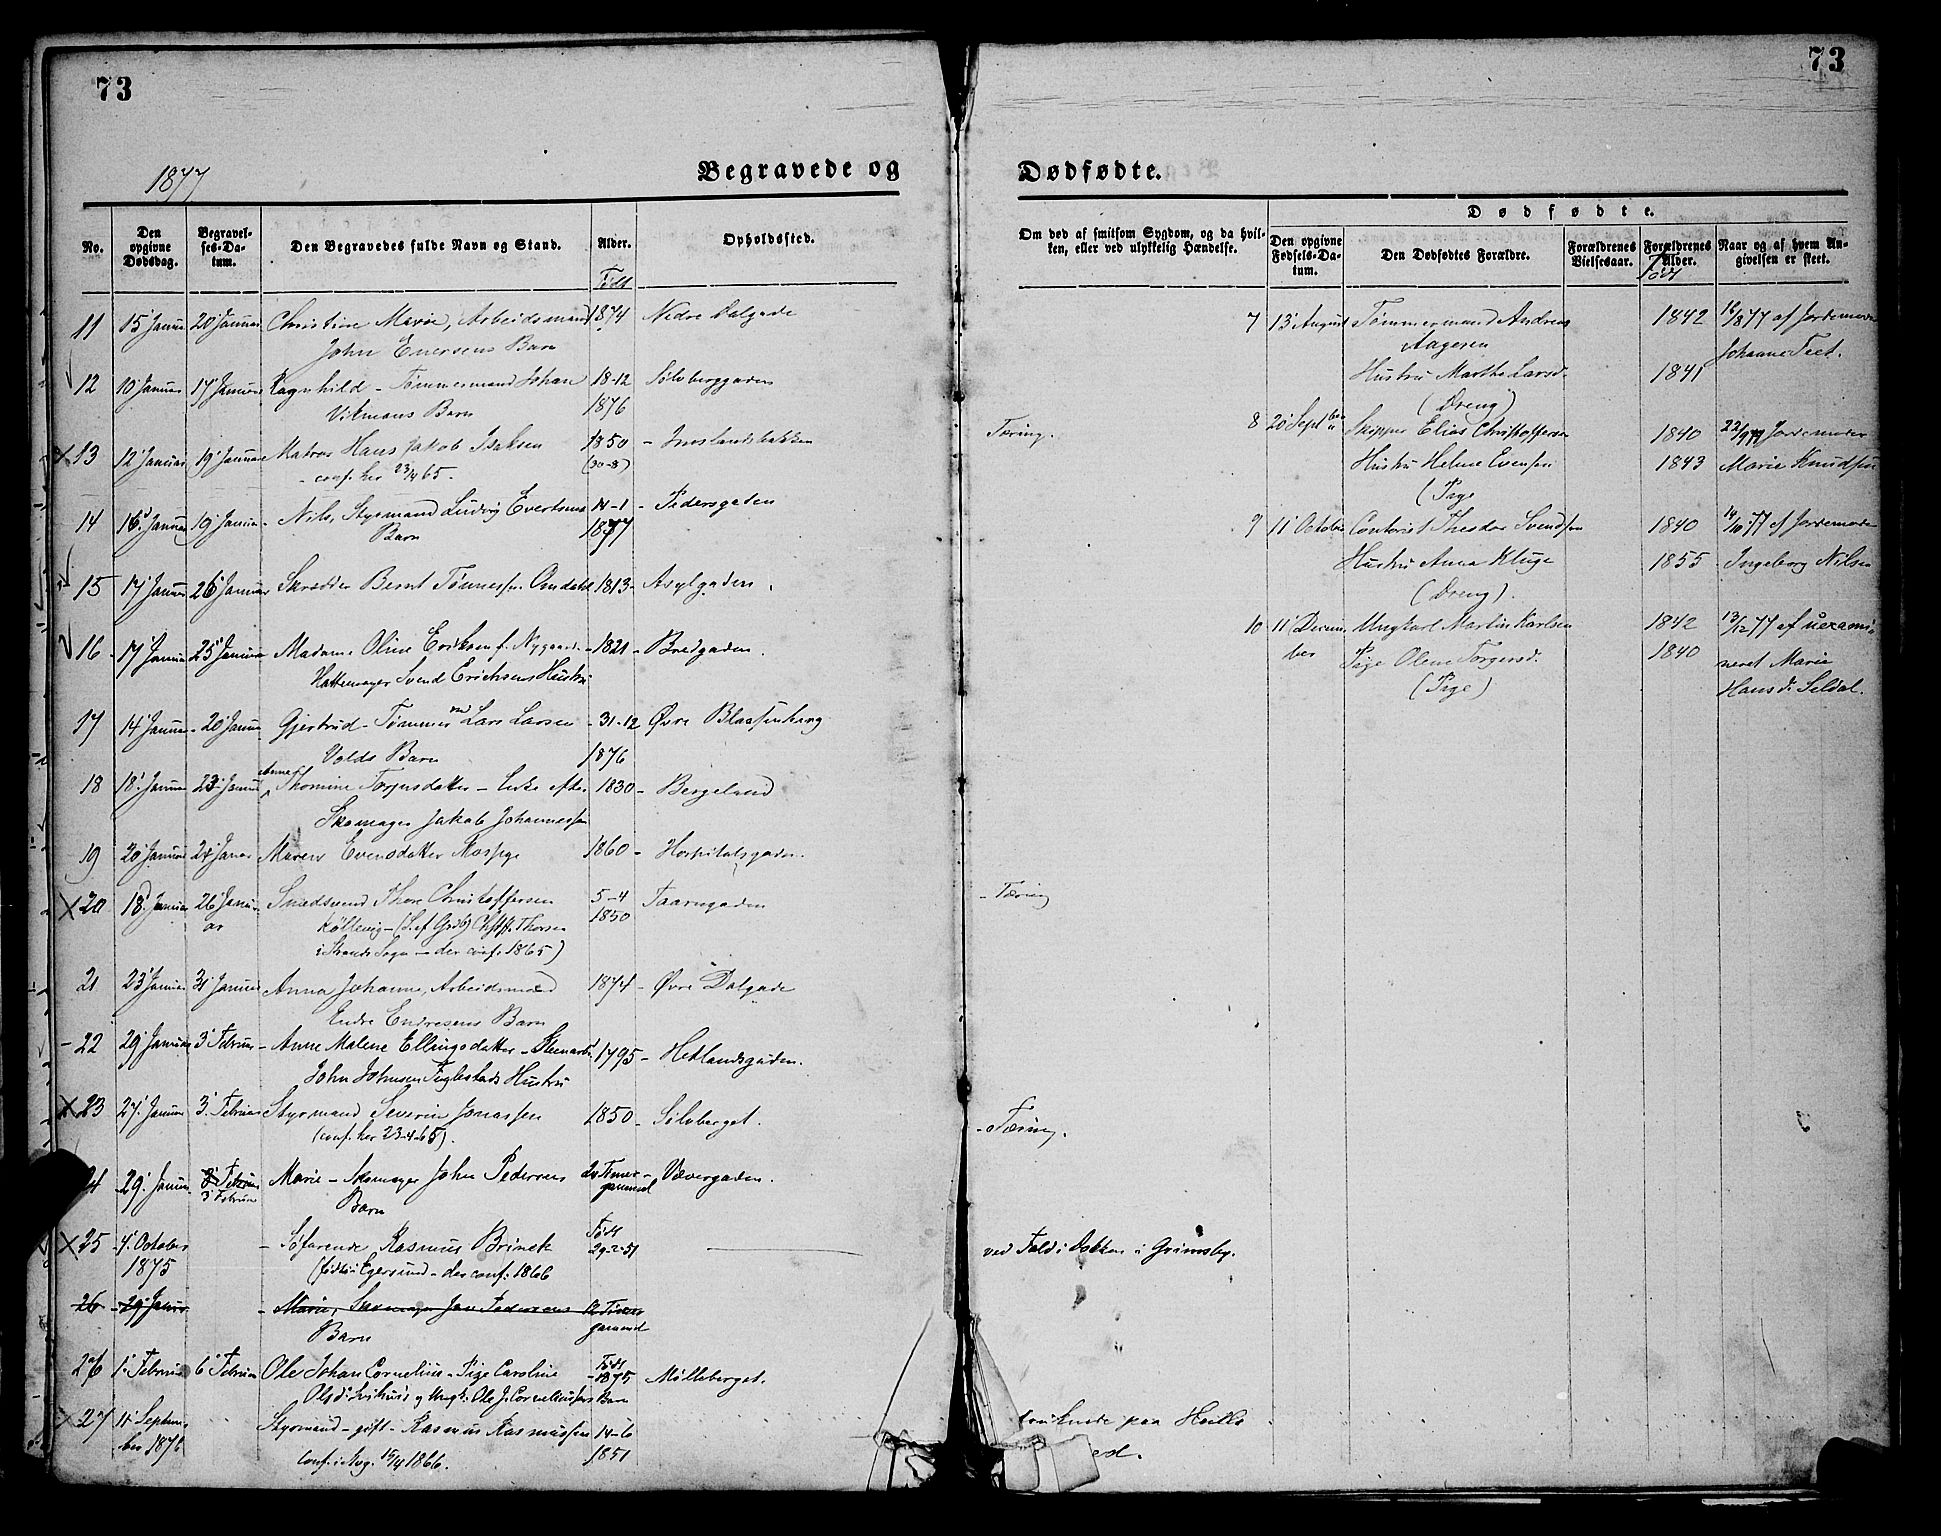 73
73
1877
Begravede og
Dødfødte.
No.
Den opgivne Dødsdag.
Begravelses-Datum.
Den Begravedes fulde Navn og Stand.
Alder.
Opholdssted.
Om død af smitsom Sygdom, og da hvilken, eller ved ulykkelig Hændelse.
Dødfødte.
Den opgivne Fødsels-Datum.
Den Dødfødtes Forældre.
Forældrenes Vielsesaar.
Forældrenes Alder.
Naar og af hvem Angivelsen er skeet.
Født
Født
11 15 Januar 20 Januar Christine Marie, Arbeidsmand 1874 Nedre Dalgade
John Enersens Barn
12 10 Januar 17 Januar Ragnhild - Tømmermand Johan 18-12 Sølvberggaden
Vikmans Barn 1876
13 12 Januar 19 Januar Matros Hans Jakob Isaksen 1850 - Jorslandsbakken Tæring.
- conf. her 23/4 65. (30-8)
14 16 Januar 19 Januar - Nils, Styrmand Ludvig Evertsens 14-1 - Pedersgaden
Barn 1877
15 17 Januar 26 Januar Skrædder Bernt Tønnessen Omdahl 1813 - Asylgaden
16 17 Januar 25 Januar Madame Oline Eriksen f. Nygaard - 1821 - Bredgaden.
Hattemager Svend Erichsens Hustru
17 14 Januar - 20 Januar Gjertrud - Tømmermd Lars Larsen - 31-12 Øvre Blaasenborg
Volds Barn 1876
18 18 Januar 23 Januar Anne Thomine Torjersdatter - Enke efter 1830 - Bergeland
Skomager Jakob Johannessen
19 20 Januar 24 Januar Maren Evensdatter 1860 - Hospitalsgaden.
20 18 Januar 26 Januar Smedsvend Thore Christoffersen 5-4 Taarngaden - Tæring
Køllevig - Chstff. Thorsen 1850
i Strands Sogn - der conf. 1865)
21 23 Januar 31 Januar Anna Johanne, Arbeidsmand 1874 - Øvre Dalgade
Endre Endresens Barn
22 29 Januar 3 Februar - Anne Malene Ellingsdatter - Steenarb. 1795 - Hetlandsgaden.
John Johnsen Fuglestads Hustru
23 27 Januar 3 Februar Styrmand Severin Jonassen 1850 - Sølvberget. - Tæring.
(conf. her 23-4-65).
24 29 Januar 3 Februar Marie - Skomager John Pedersens 20 Timer - Vævergaden.
3 Februar Barn gammel
25 4 October - Søfarende Rasmus Brinck Født ved Fald i Dokken i Grimsby.
1875 (født i Egersund - der conf. 1866 29-2-51
26 - 29 Januar - Marie, Skomager Jon Pedersens 12 Timer
Barn gammel
26 1 Februar 6 Februar Ole Johan Cornelius - Pige Caroline Født - 1875 Mølleberget.
Olsd. og Ungk. Ole J. Corneliussens Barn
27 11 September 1876 Styrmand - gift - Rasmus Rasmussen 14-6 druknede paa
conf. i Aug. 15/4 1866. 1851
7 13 August Tømmermand Andreas 1842 16/8 77 af Jordemoder
Aagesen Johanne Teet.
Hustru Marthe Larsd. 1841
(Dreng)
8 20 September Skipper Elias Christoffersen 1840 22/9 77 Jordemoder
Hustru Helene Evensen 1843 Marie Knudsen
(Pige
9 11 October Contorist Theodor Svendsen 1840 14/10 77 af Jordemoder
Hustru Anna Kluge 1855 Ingeborg Nilsen
(Dreng).
10 11 December Ungkarl Martin Karlsen 1842 13/12 77 af uexami-
Pige Olene Torgersd. 1840 neret Marie
(Pige) Hansd. Seldal.